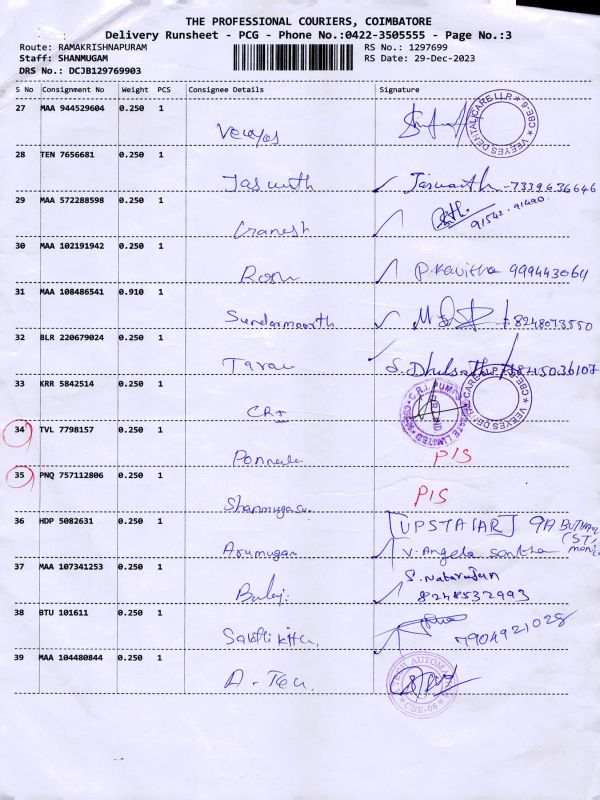 THE PROFESSIONAL COURIERS, COIMBATORE
Delivery Runsheet - PCG - Phone No.:0422-3505555 - Page No.:3
Route: RAMAKRISHNAPURAM RS No.: 1297699
Staff: SHANMUGAM RS Date: 29-Dec-2023
DRS No.: DCJB129769903
S No Consignment No Weight PCS Consignee Details Signature
27 MAA 944529604 0.250 1
VEEYES DENTALICARE LLP CBE-6
28 TEN 7656681 0.250 1
Jaswith Jaswaith -7339636646
29 MAA 572288598 0.250 1
91542.91490.
30 MAA 102191942 0.250 1
P.Kavitha 999443064
31 MAA 108486541 0.910 1
Sundarmoorth 8248073550
32 BLR 220679024 0.250 1
8845036107
33 KRR 5842514 0.250 1
CRI C.R.I. PUMPS PRIVATE LIMITED
34 TVL 7798157 0.250 1
PIS
35 PNQ 757112806 0.250 1
Shanmugasu PIS
36 HDP 5082631 0.250 1
[UPSTAIAR] 9A
Arumugam V. Angela
37 MAA 107341253 0.250 1
S. Natarajan
Balaji 8248532993
38 BTU 101611 0.250 1
7904921028
39 MAA 104480844 0.250 1
A. Tex
TECH AUTOMA
CBE-06